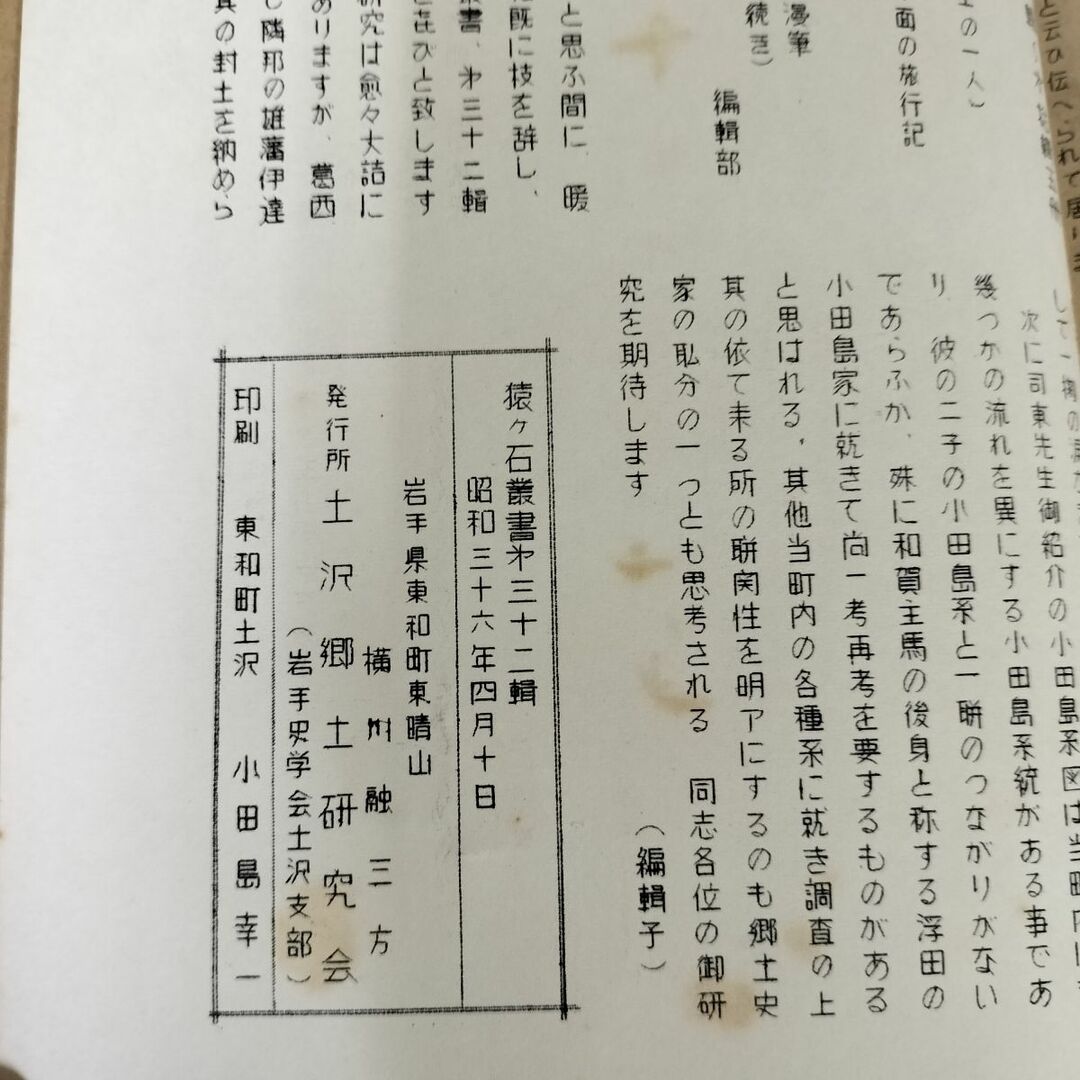 と云ひ伝へられて居りま
の一人）
面の旅行記
漫筆
続き）
編輯部
と思ふ間に、暖
既に枝を辞し、
書、第三十二輯
と㐂びと致します
研究は愈々大詰に
ありますが、葛西
隣邦の雄藩伊達
其の封土を納めら
次に司東先生御紹介の小田島系図は当町内に
幾つかの流れを異にする小田島系統がある事であ
り、彼の二子の小田島系と一聨のつながりがない
であらふか、殊に和賀主馬の後身と称する浮田の
小田島家に就きて尚一考再考を要するものがある
と思はれる、其他当町内の各種系に就き調査の上
其の依て来る所の聨関性を明アにするのも郷土史
家の耴分の一つとも思考される　同志各位の御研
究を期待します
（編輯子）
猿ヶ石叢書第三十二輯
昭和三十六年四月十日
岩手県東和町東晴山
横川融三方
発行所 土沢郷土研究会
（岩手史学会土沢支部）
印刷　東和町土沢　小田島幸一